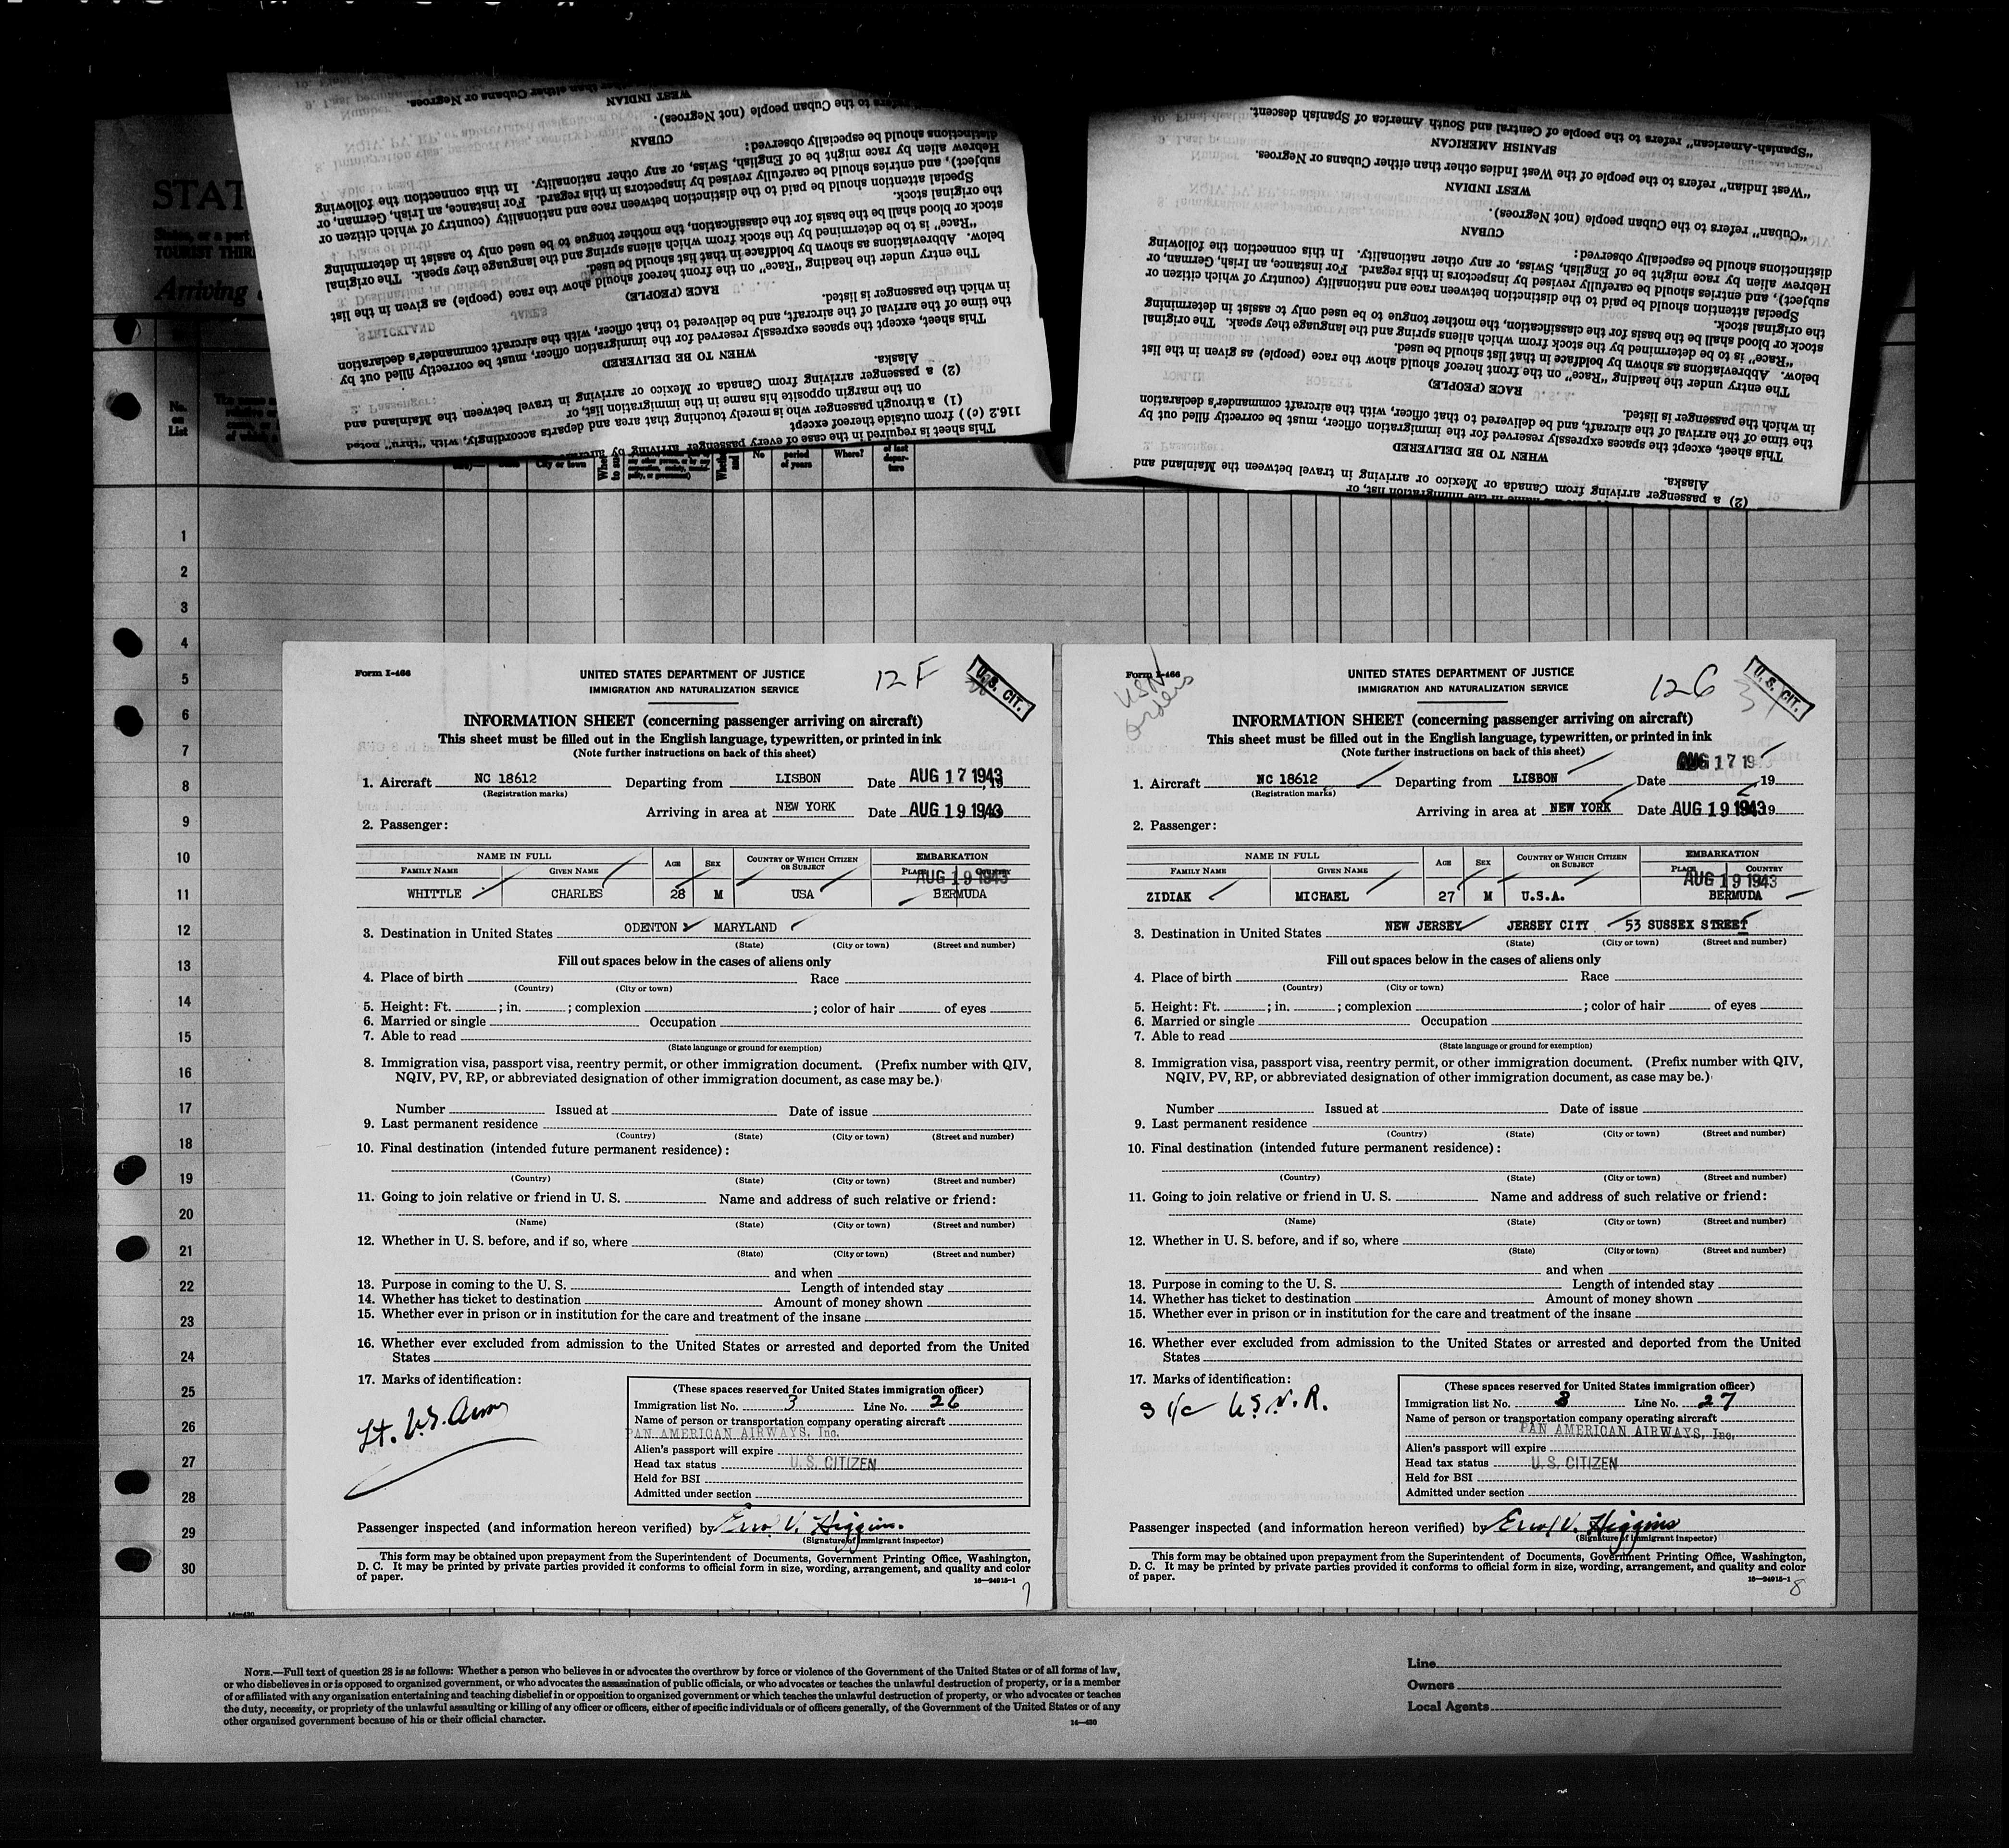 STAT
States, or a part
TOURIST THIR
Arriving
No.
on
List
"West Indian" refers to the people of the West Indies other than either Cubans or Negroes.
WEST INDIAN
"Cuban" refers to the Cuban people (not Negroes).
CUBAN
distinctions should be especially observed:
Hebrew alien by race might be of English, Swiss, or any other nationality. In this connection the following
subject), and entries should be carefully revised by inspectors in this regard. For instance, an Irish, German, or
Special attention should be paid to the distinction between race and nationality (country of which citizen or
the original stock.
stock or blood shall be the basis for the classification, the mother tongue to be used only to assist in determining
"Race" is to be determined by the stock from which aliens spring and the language they speak. The original
below. Abbreviations as shown by boldface in that list should be used.
The entry under the heading "Race" on the front hereof should show the race (people) as given in the list
RACE (PEOPLE)
in which the passenger is listed.
the time of the arrival of the aircraft, and be delivered to that officer, with the aircraft commander's declaration
This sheet, except the spaces expressly reserved for the immigration officer, must be correctly filled out by
WHEN TO BE DELIVERED
Alaska.
(2) a passenger arriving from Canada or Mexico or arriving in travel between the Mainland and
on the margin opposite his name in the immigration list, or
(1) a through passenger who is merely touching that area and departs accordingly, with "thru" noted
116.2 (c)) from outside thereof except
This sheet is required in the case of every passenger arriving by aircraft
STRICKLAND JAMES
"Spanish-American" refers to the people of Central and South America of Spanish descent.
SPANISH AMERICAN
"West Indian" refers to the people of the West Indies other than either Cubans or Negroes.
WEST INDIAN
"Cuban" refers to the Cuban people (not Negroes).
CUBAN
distinctions should be especially observed:
Hebrew alien by race might be of English, Swiss, or any other nationality. In this connection the following
subject), and entries should be carefully revised by inspectors in this regard. For instance, an Irish, German, or
Special attention should be paid to the distinction between race and nationality (country of which citizen or
the original stock.
stock or blood shall be the basis for the classification, the mother tongue to be used only to assist in determining
"Race" is to be determined by the stock from which aliens spring and the language they speak. The original
below. Abbreviations as shown by boldface in that list should be used.
The entry under the heading "Race" on the front hereof should show the race (people) as given in the list
RACE (PEOPLE)
in which the passenger is listed.
the time of the arrival of the aircraft, and be delivered to that officer, with the aircraft commander's declaration
This sheet, except the spaces expressly reserved for the immigration officer, must be correctly filled out by
WHEN TO BE DELIVERED
Alaska.
(2) a passenger arriving from Canada or Mexico or arriving in travel between the Mainland and
City or town No period of years Where? of last departure
1
2
3
4
5
6
7
8
9
10
11
12
13
14
15
16
17
18
19
20
21
22
23
24
25
26
27
28
29
30
Form I-466
UNITED STATES DEPARTMENT OF JUSTICE
IMMIGRATION AND NATURALIZATION SERVICE
12F
U.S. CIT.
INFORMATION SHEET (concerning passenger arriving on aircraft)
This sheet must be filled out in the English language, typewritten, or printed in ink
(Note further instructions on back of this sheet)
1. Aircraft NC 18612 Departing from LISBON Date AUG 17 1943, 19
(Registration marks)
Arriving in area at NEW YORK Date AUG 19 1943
2. Passenger:
NAME IN FULL AGE SEX COUNTRY OF WHICH CITIZEN OR SUBJECT EMBARKATION
FAMILY NAME GIVEN NAME PLACE COUNTRY
AUG 19 1943
WHITTLE CHARLES 28 M USA BERMUDA
3. Destination in United States ODENTON MARYLAND
(State) (City or town) (Street and number)
Fill out spaces below in the cases of aliens only
4. Place of birth Race
(Country) (City or town)
5. Height: Ft. ; in. ; complexion ; color of hair of eyes
6. Married or single Occupation
7. Able to read
(State language or ground for exemption)
8. Immigration visa, passport visa, reentry permit, or other immigration document. (Prefix number with QIV,
NQIV, PV, RP, or abbreviated designation of other immigration document, as case may be.)
Number Issued at Date of issue
9. Last permanent residence
(Country) (State) (City or town) (Street and number)
10. Final destination (intended future permanent residence):
(Country) (State) (City or town) (Street and number)
11. Going to join relative or friend in U. S. Name and address of such relative or friend:
(Name) (State) (City or town) (Street and number)
12. Whether in U. S. before, and if so, where
(State) (City or town) (Street and number)
and when
13. Purpose in coming to the U. S. Length of intended stay
14. Whether has ticket to destination Amount of money shown
15. Whether ever in prison or in institution for the care and treatment of the insane
16. Whether ever excluded from admission to the United States or arrested and deported from the United
States
17. Marks of identification:
Lt. U.S. Army
(These spaces reserved for United States immigration officer)
Immigration list No. 3 Line No. 26
Name of person or transportation company operating aircraft
PAN AMERICAN AIRWAYS, Inc.
Alien's passport will expire
Head tax status U.S. CITIZEN
Held for BSI
Admitted under section
Passenger inspected (and information hereon verified) by Errol V. Higgins
(Signature of immigrant inspector)
This form may be obtained upon prepayment from the Superintendent of Documents, Government Printing Office, Washington,
D. C. It may be printed by private parties provided it conforms to official form in size, wording, arrangement, and quality and color
of paper. 16—24915-1
7
Form I-466
USN
Orders
UNITED STATES DEPARTMENT OF JUSTICE
IMMIGRATION AND NATURALIZATION SERVICE
12G
U.S. CIT.
INFORMATION SHEET (concerning passenger arriving on aircraft)
This sheet must be filled out in the English language, typewritten, or printed in ink
(Note further instructions on back of this sheet)
AUG 17 19
1. Aircraft NC 18612 Departing from LISBON Date 19
(Registration marks)
Arriving in area at NEW YORK Date AUG 19 1943 19
2. Passenger:
NAME IN FULL AGE SEX COUNTRY OF WHICH CITIZEN OR SUBJECT EMBARKATION
FAMILY NAME GIVEN NAME PLACE COUNTRY
AUG 19 1943
ZIDIAK MICHAEL 27 M U.S.A. BERMUDA
3. Destination in United States NEW JERSEY JERSEY CITY 53 SUSSEX STREET
(State) (City or town) (Street and number)
Fill out spaces below in the cases of aliens only
4. Place of birth Race
(Country) (City or town)
5. Height: Ft. ; in. ; complexion ; color of hair of eyes
6. Married or single Occupation
7. Able to read
(State language or ground for exemption)
8. Immigration visa, passport visa, reentry permit, or other immigration document. (Prefix number with QIV,
NQIV, PV, RP, or abbreviated designation of other immigration document, as case may be.)
Number Issued at Date of issue
9. Last permanent residence
(Country) (State) (City or town) (Street and number)
10. Final destination (intended future permanent residence):
(Country) (State) (City or town) (Street and number)
11. Going to join relative or friend in U. S. Name and address of such relative or friend:
(Name) (State) (City or town) (Street and number)
12. Whether in U. S. before, and if so, where
(State) (City or town) (Street and number)
and when
13. Purpose in coming to the U. S. Length of intended stay
14. Whether has ticket to destination Amount of money shown
15. Whether ever in prison or in institution for the care and treatment of the insane
16. Whether ever excluded from admission to the United States or arrested and deported from the United
States
17. Marks of identification:
S 1/c U.S.N.R.
(These spaces reserved for United States immigration officer)
Immigration list No. 3 Line No. 27
Name of person or transportation company operating aircraft
PAN AMERICAN AIRWAYS, Inc.
Alien's passport will expire
Head tax status U.S. CITIZEN
Held for BSI
Admitted under section
Passenger inspected (and information hereon verified) by Errol V. Higgins
(Signature of immigrant inspector)
This form may be obtained upon prepayment from the Superintendent of Documents, Government Printing Office, Washington,
D. C. It may be printed by private parties provided it conforms to official form in size, wording, arrangement, and quality and color
of paper. 16—24915-1
8
NOTE.—Full text of question 28 is as follows: Whether a person who believes in or advocates the overthrow by force or violence of the Government of the United States or of all forms of law,
or who disbelieves in or is opposed to organized government, or who advocates the assassination of public officials, or who advocates or teaches the unlawful destruction of property, or is a member
of or affiliated with any organization entertaining and teaching disbelief in or opposition to organized government or which teaches the unlawful destruction of property, or who advocates or teaches
the duty, necessity, or propriety of the unlawful assaulting or killing of any officer or officers, either of specific individuals or of officers generally, of the Government of the United States or of any
other organized government because of his or their official character. 14—430
Line
Owners
Local Agents